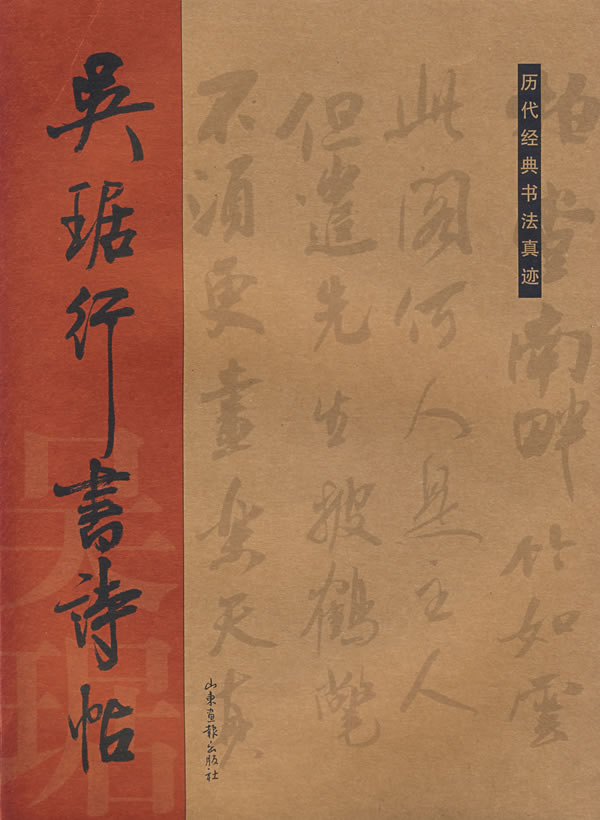 柏堂南畔竹如雲
历代经典书法真迹
此閣何人是主人
但遣先生披鶴氅
不須更畫樂天真
山东画报出版社
吳琚行書詩帖
吴琚